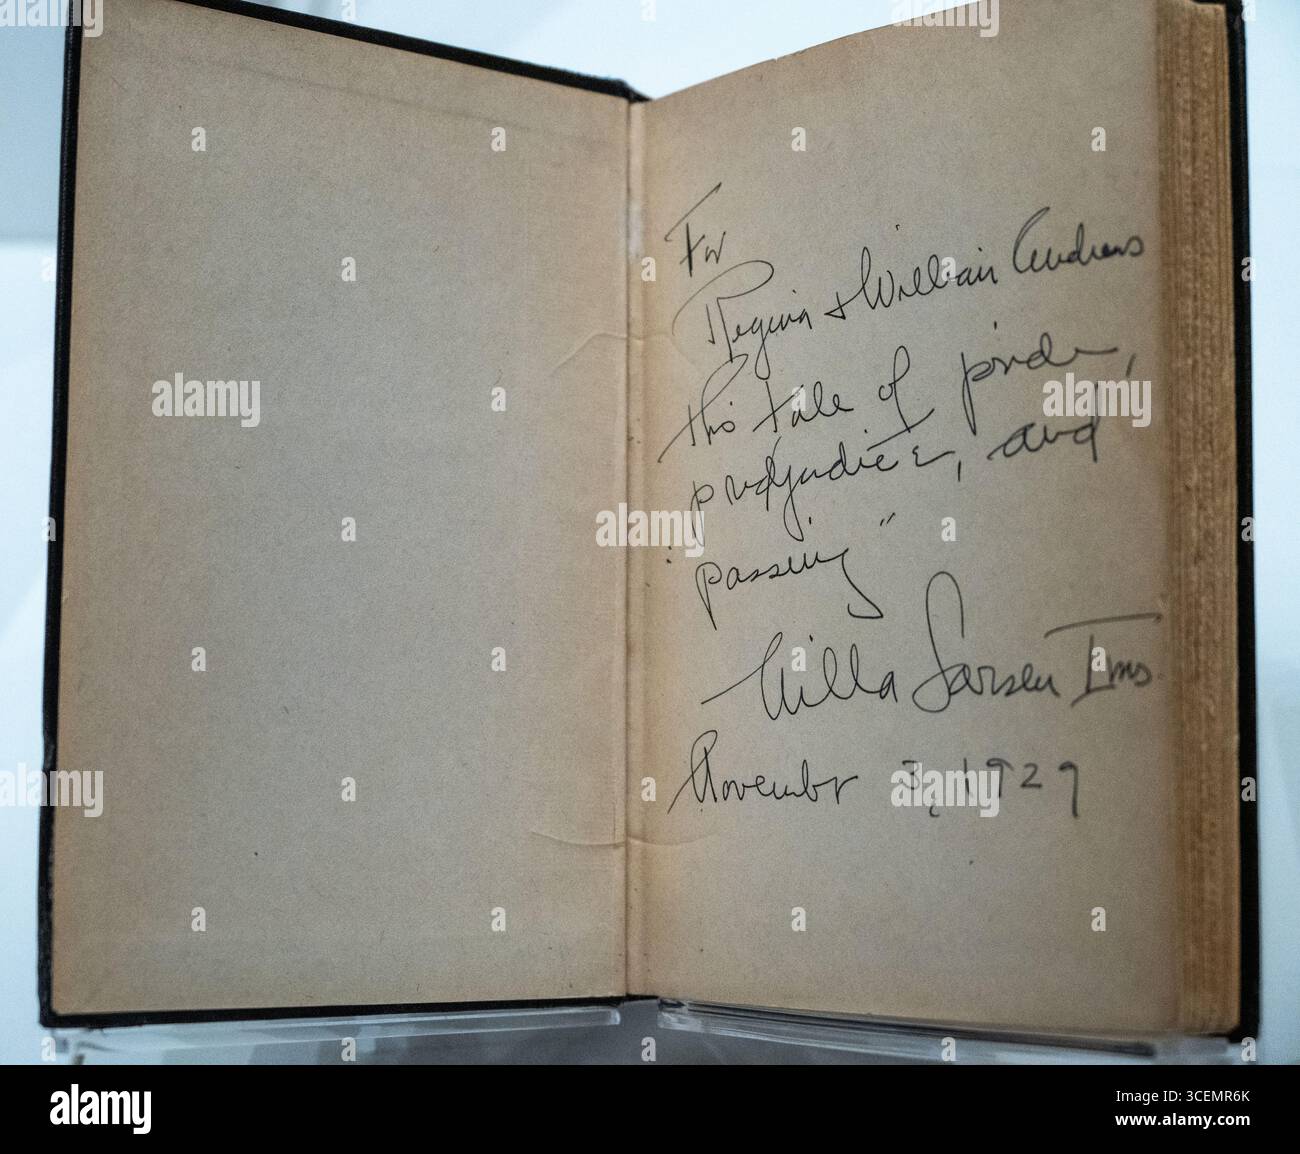 For
Regina & William Andrews
this tale of pride,
prejudice, and
"passing"
Nella Larsen Imes
November 3, 1929
alamy
alamy
alamy
alamy
Image ID: 3CEMR6K
www.alamy.com